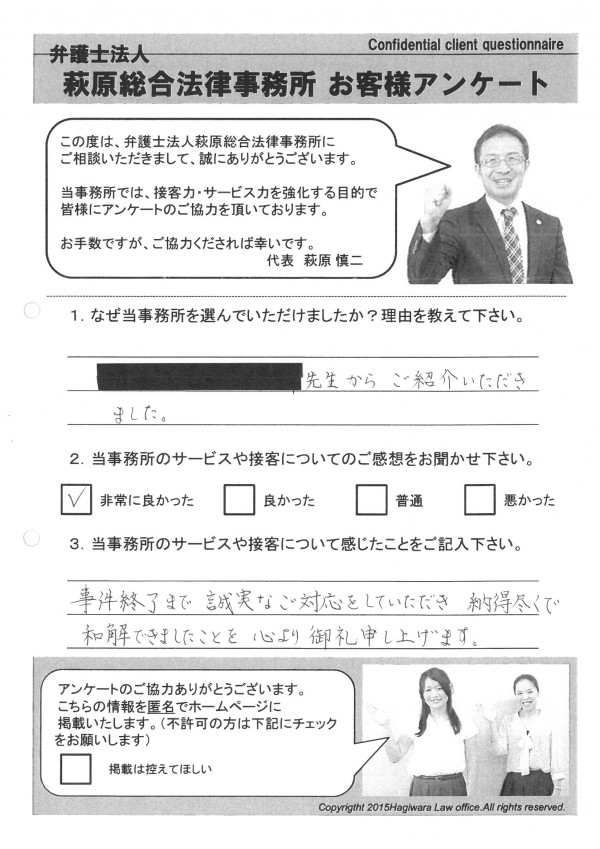 Confidential client questionnaire
弁護士法人
萩原総合法律事務所 お客様アンケート
この度は、弁護士法人萩原総合法律事務所に
ご相談いただきまして、誠にありがとうございます。
当事務所では、接客力・サービス力を強化する目的で
皆様にアンケートのご協力を頂いております。
お手数ですが、ご協力くだされば幸いです。
代表 萩原 慎二
1．なぜ当事務所を選んでいただけましたか？理由を教えて下さい。
先生から ご紹介いただき
ました。
2．当事務所のサービスや接客についてのご感想をお聞かせ下さい。
非常に良かった 良かった 普通 悪かった
3．当事務所のサービスや接客について感じたことをご記入下さい。
事件終了まで 誠実なご対応をしていただき 納得尽くで
和解できましたことを 心より 御礼申し上げます。
アンケートのご協力ありがとうございます。
こちらの情報を匿名でホームページに
掲載いたします。（不許可の方は下記にチェック
をお願いします）
掲載は控えてほしい
Copyrigtht 2015Hagiwara Law office.All rights reserved.